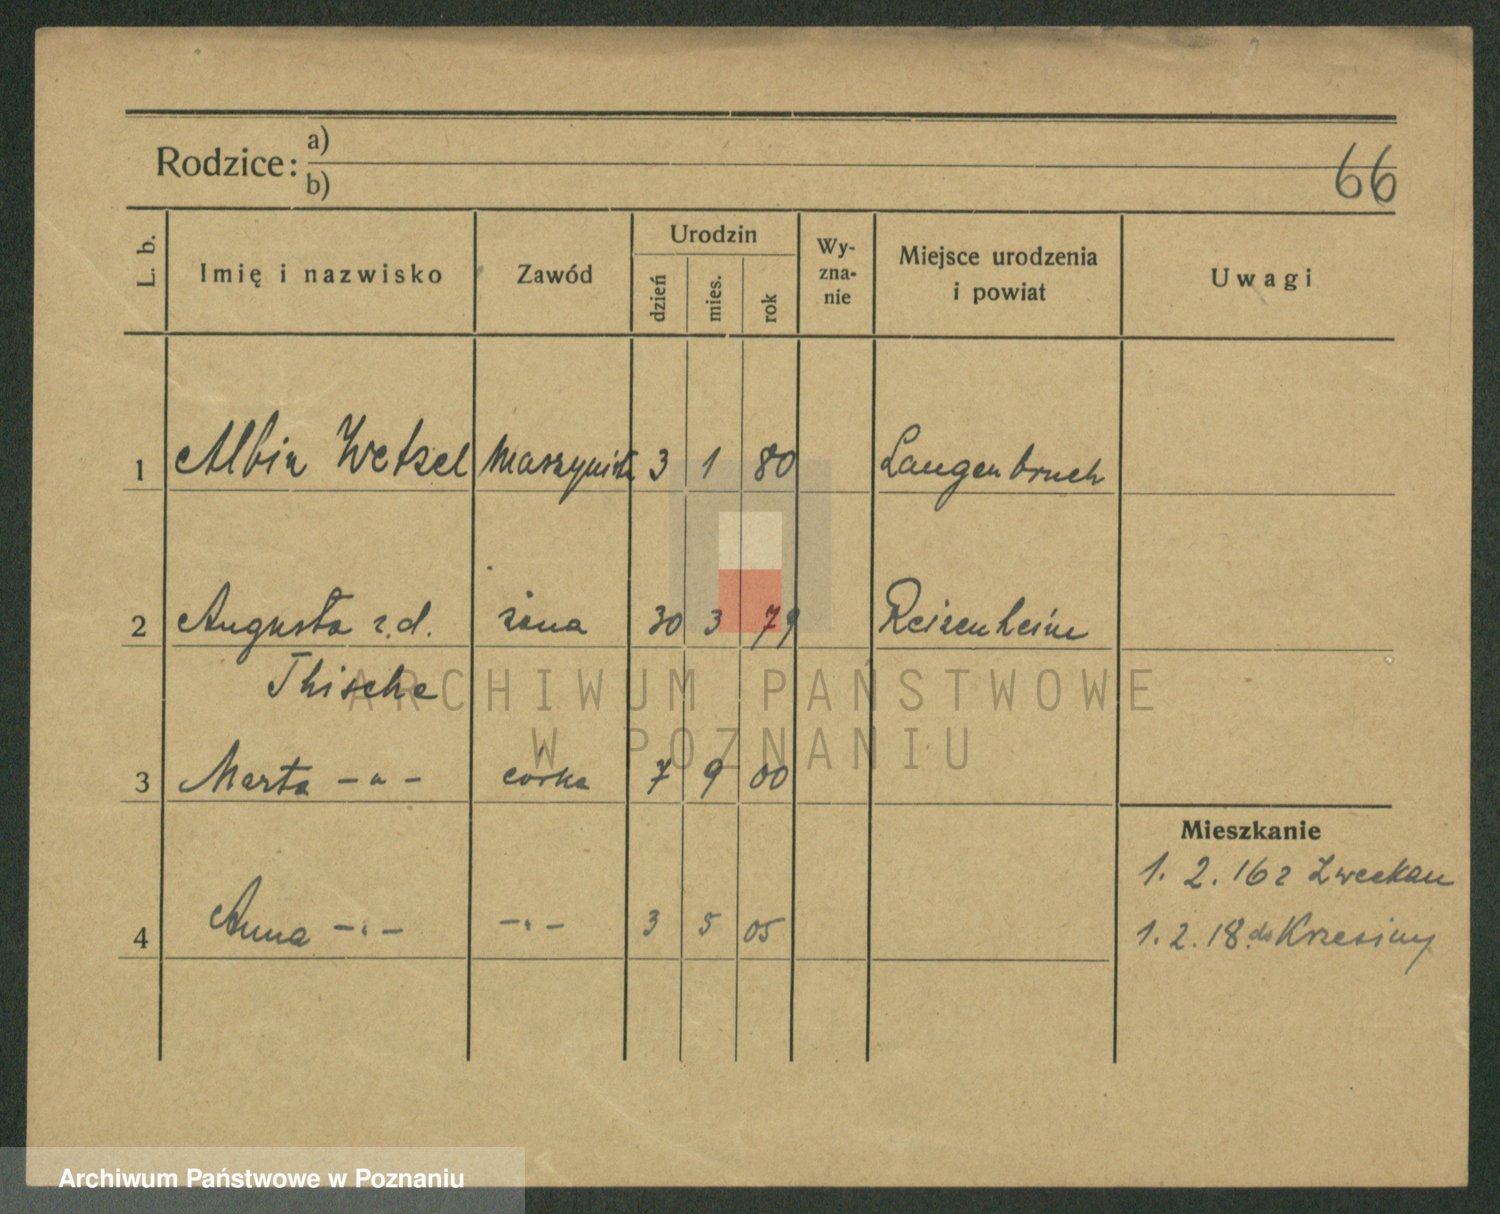 Rodzice: a)
b)
66
L. b.
Imię i nazwisko
Zawód
Urodzin
dzień
mies.
rok
Wy-
zna-
nie
Miejsce urodzenia
i powiat
Uwagi
1 Albin Wetzel maszynista 3 1 80 Langenbruch
2 Augusta z.d. żona 30 3 79 Reizenheim
Thische
3 Marta -"- córka 7 9 00
Mieszkanie
1. 2. 16 z Zweckau
4 Anna -"- -"- 3 5 05
1. 2. 18 do Krzesiny
ARCHIWUM PAŃSTWOWE
W POZNANIU
Archiwum Państwowe w Poznaniu